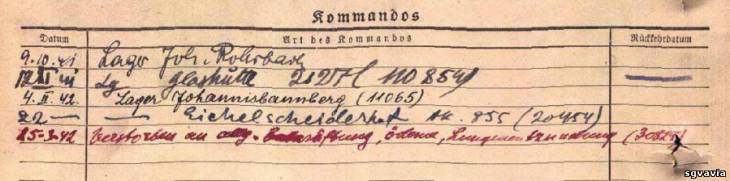 Kommandos
Datum Art des Kommandos Rückkehrdatum
9.10.41 Lager Joh. Rohrbach
12 XI 41 Lg Glashütte 2127 (110854)
4. II. 42. Lager Johannisbannberg (11065)
22 — — Eichelscheiderhof Ak. 855 (20454)
15.3.42 Verstorben an allg. , Ödeme, Lungenentzündung
sgvavia